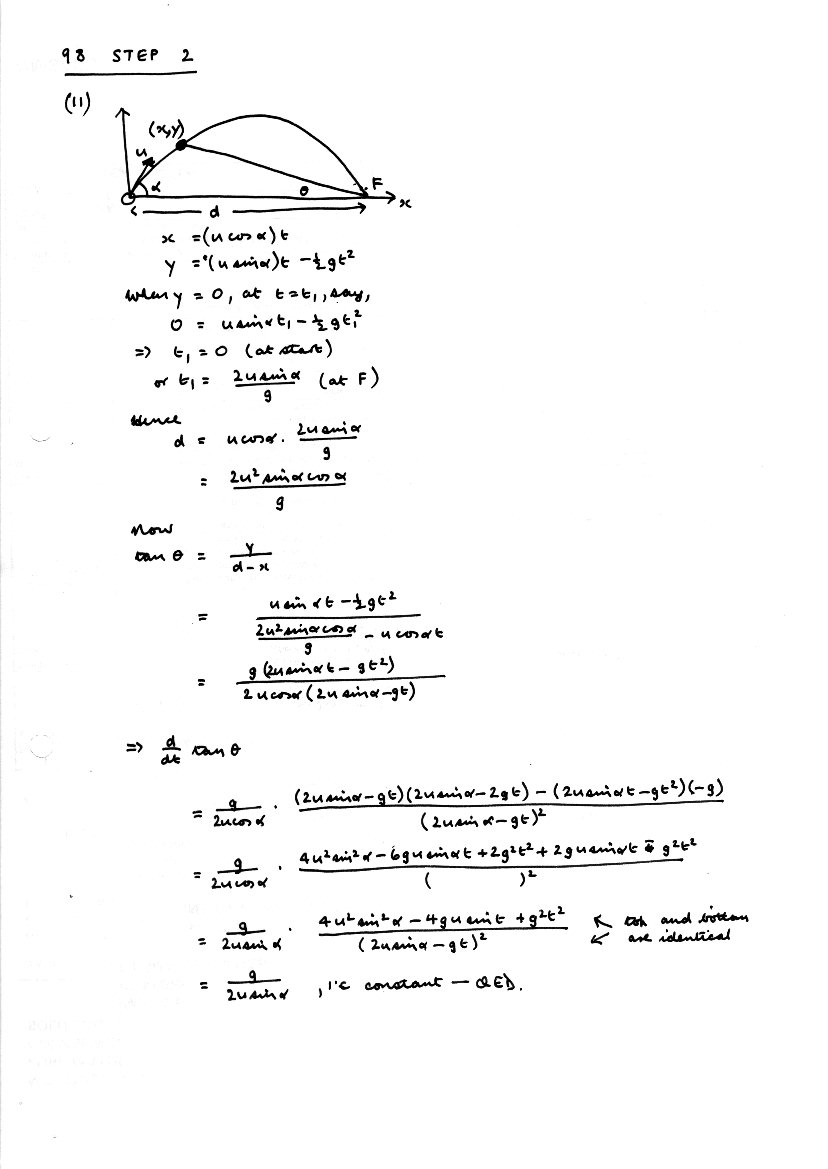 98 STEP 2
(11)
(x,y)
u
α
θ
F
x
d
x = (u cos α) t
y = (u sin α) t - ½gt²
when y = 0, at t = t₁, say,
0 = u sin α t₁ - ½gt₁²
⇒ t₁ = 0 (at start)
or t₁ = 2u sin α / g (at F)
Hence
d = u cos α . 2u sin α / g
= 2u² sin α cos α / g
Now
tan θ = y / (d - x)
= (u sin α t - ½gt²) / (2u² sin α cos α / g - u cos α t)
= g (2u sin α t - gt²) / 2u cos α (2u sin α - gt)
⇒ d/dt tan θ
= g / 2u cos α . ((2u sin α - gt)(2u sin α - 2gt) - (2u sin α t - gt²)(-g)) / (2u sin α - gt)²
= g / 2u cos α . (4u² sin² α - 6gu sin α t + 2g²t² + 2gu sin α t - g²t²) / ( )²
= g / 2u sin α . (4u² sin² α - 4gu sin t + g²t²) / (2u sin α - gt)² ↖ top and bottom
↙ are identical
= g / 2u sin α , i.e. constant — QED.